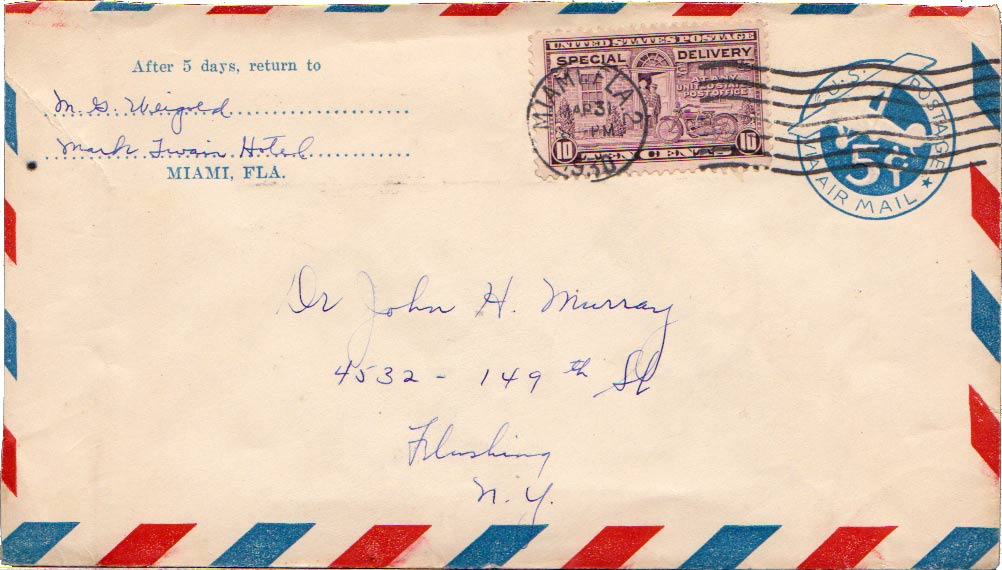 After 5 days, return to
M. G. Weigold
Mark Twain Hotel
MIAMI, FLA.
UNITED STATES POSTAGE
SPECIAL DELIVERY
AT ANY
UNITED STATES
POST OFFICE
10 TEN CENTS 10
MIAMI, FLA. 2
MAR 31
PM
1930
U.S. POSTAGE
5¢
VIA AIR MAIL
Dr John H. Murray
4532 - 149th St
Flushing
N.Y.